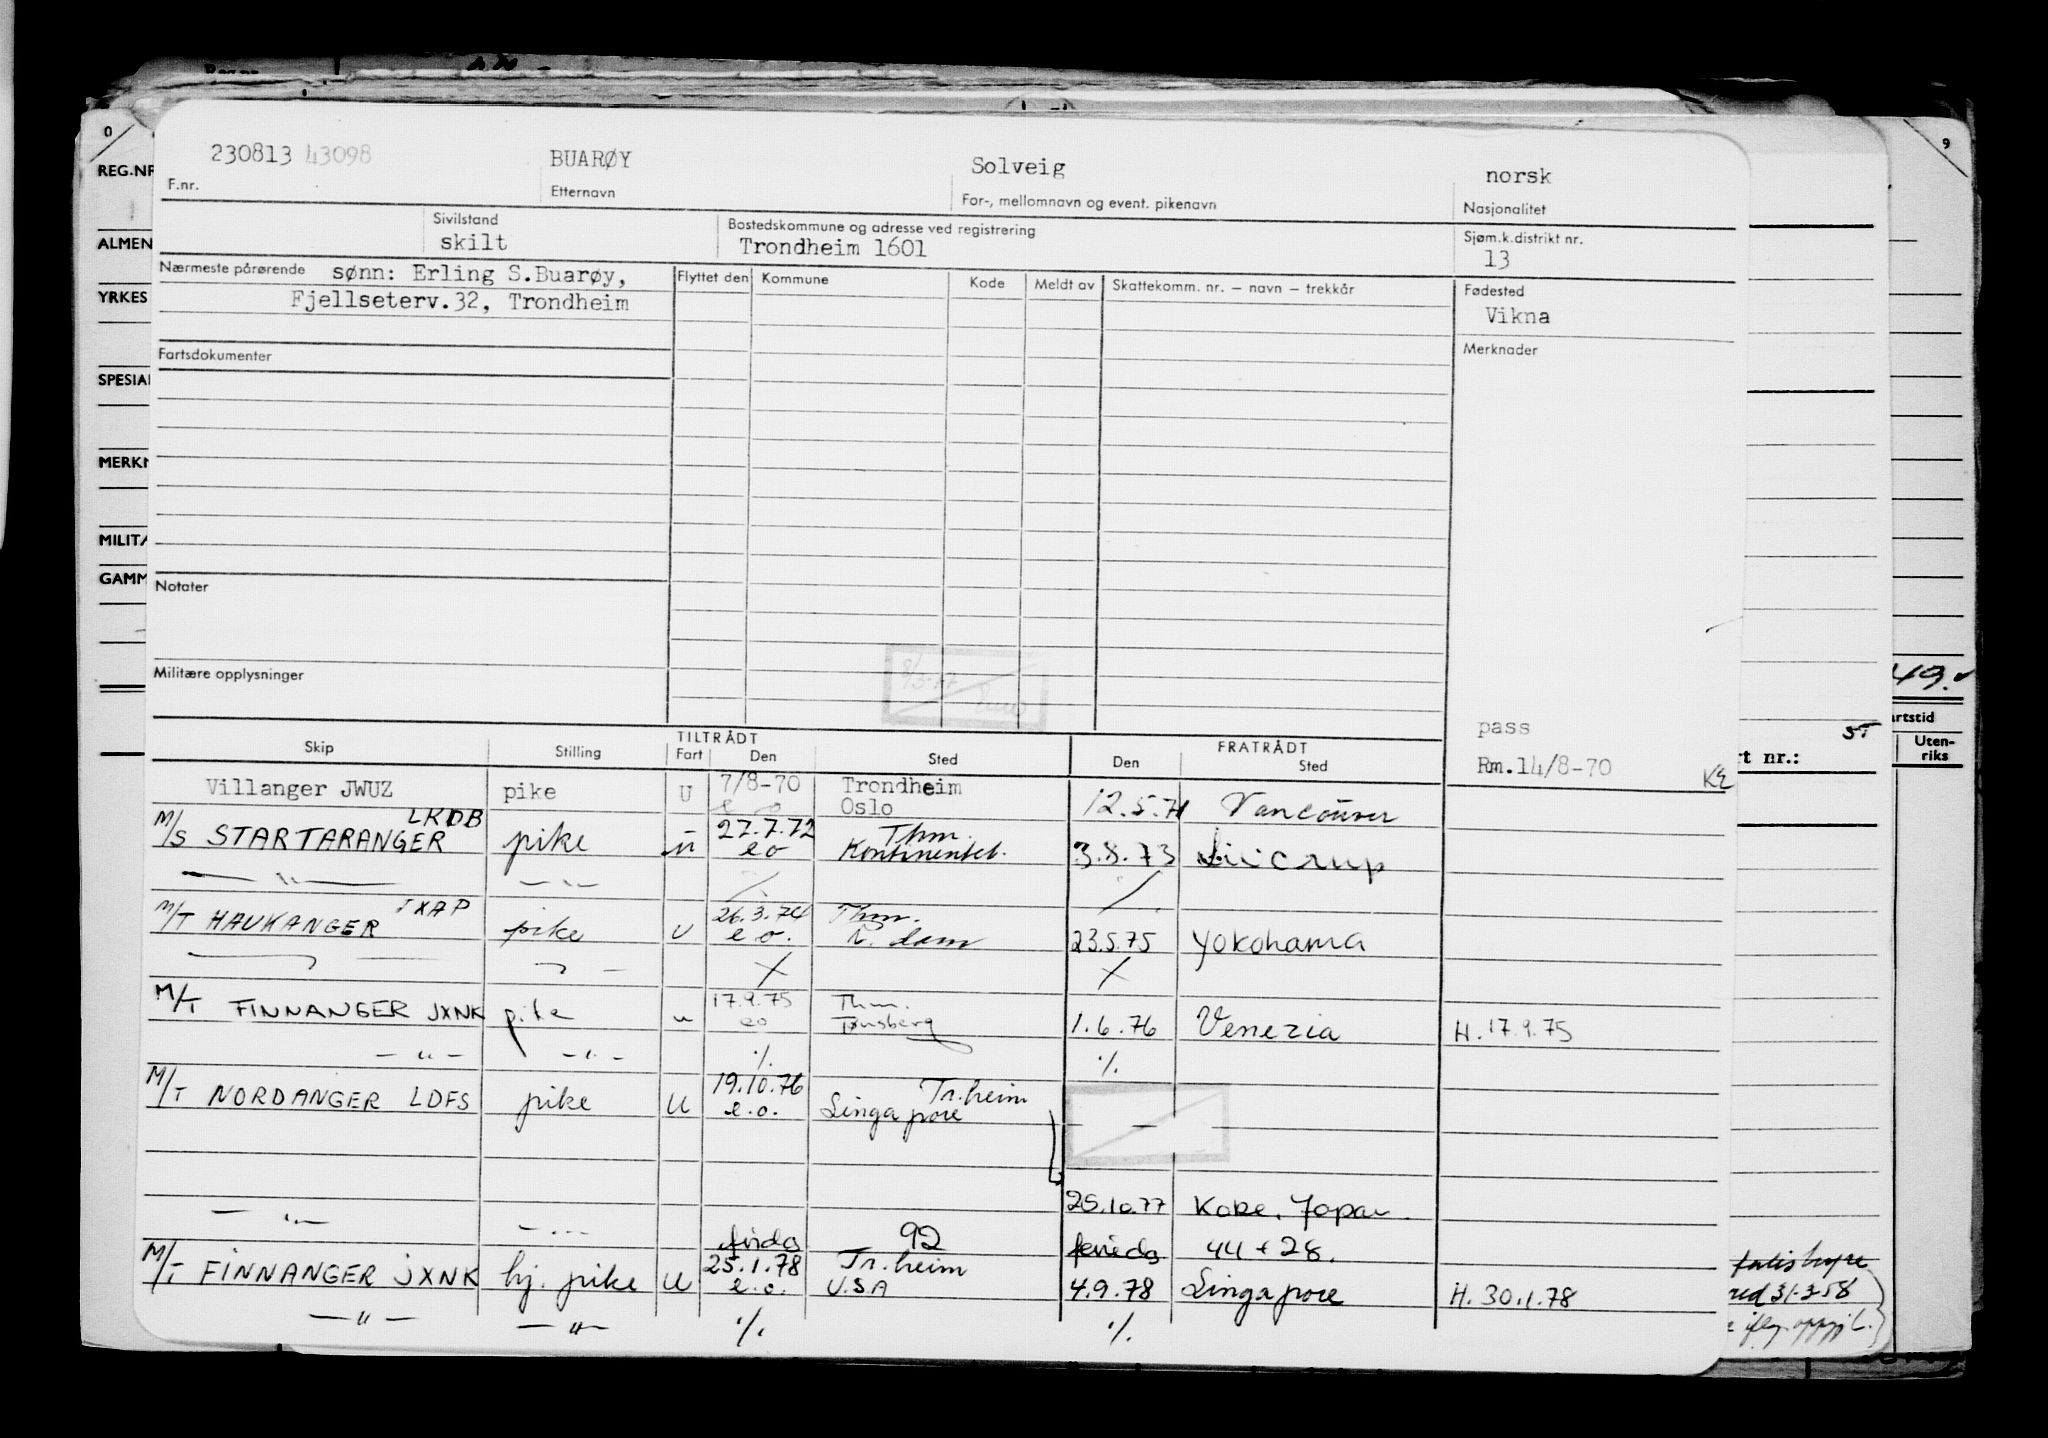 230813 43098 BUARØY Solveig norsk
F.nr. Etternavn For-, mellomnavn og event. pikenavn Nasjonalitet
Sivilstand Bostedskommune og adresse ved registrering Sjøm.k.distrikt nr.
skilt Trondheim 1601 13
Nærmeste pårørende sønn: Erling S.Buarøy, Flyttet den Kommune Kode Meldt av Skattekomm. nr. — navn — trekkår Fødested
Fjellseterv.32, Trondheim Vikna
Fartsdokumenter Merknader
Notater
Militære opplysninger
pass
TILTRÅDT FRATRÅDT
Skip Stilling Fart Den Sted Den Sted
Rm.14/8-70 KE
Villanger JWUZ pike U 7/8-70 Trondheim
Oslo 12.5.71 Vancouver
LKDB 27.7.72 Thm.
M/S STARTARANGER pike u eo Kontinentet. 3.8.73
— " — — " — % %
JXAP 26.3.74 Thm.
M/T HAUKANGER pike U e.o. R.dam 23.5.75 Yokohama
17.9.75 Thm.
M/T FINNANGER JXNK pike u eo Tønsberg 1.6.76 Venezia H. 17.9.75
— " — — " — % %
19.10.76 Tr.heim
M/T NORDANGER LDFS pike U e.o. Singapore
25.10.77 Kobe, Japan.
— " — — " —
92 44 + 28.
25.1.78 Tr.heim
M/T FINNANGER JXNK hj. pike U e.o. U.S.A 4.9.78 Singapore H. 30.1.78
— " — — " — % %
0
REG.NR
ALMEN
YRKES
SPESIAL
MERKN
MILITÆ
GAMM
9
49.
artstid
Uten-
riks
rt nr.: 5T
red 31-3-58